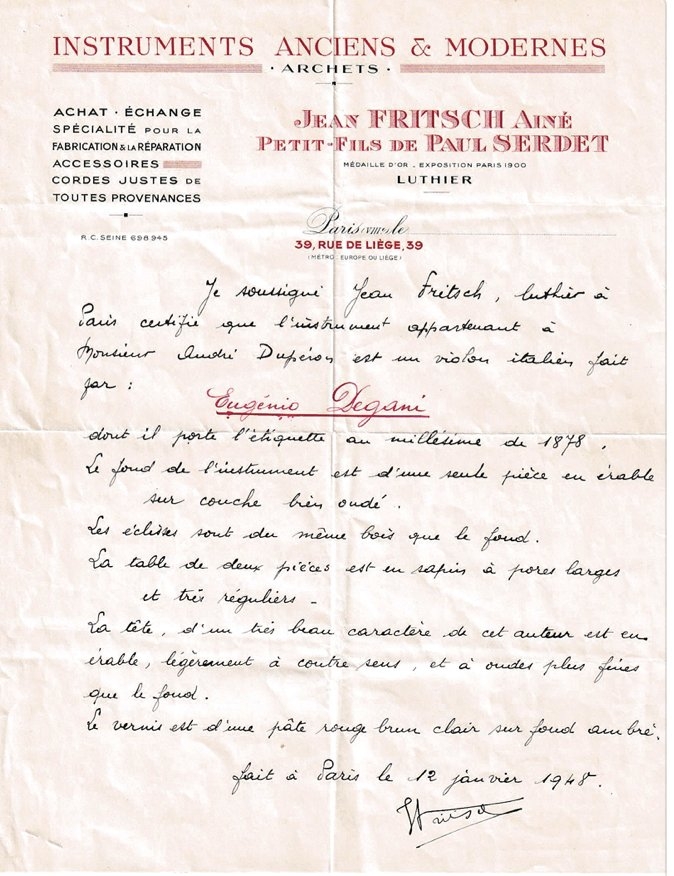 INSTRUMENTS ANCIENS & MODERNES
· ARCHETS ·
ACHAT · ÉCHANGE
SPÉCIALITÉ POUR LA
FABRICATION & LA RÉPARATION
ACCESSOIRES
CORDES JUSTES DE
TOUTES PROVENANCES
R.C. SEINE 698.945
JEAN FRITSCH AINÉ
PETIT-FILS DE PAUL SERDET
MÉDAILLE D'OR . EXPOSITION PARIS 1900
LUTHIER
Paris (VIIIe) le
39, RUE DE LIÈGE, 39
(MÉTRO : EUROPE OU LIÈGE)
Je soussigné Jean Fritsch, luthier à
Paris certifie que l'instrument appartenant à
Monsieur André Dupéron est un violon italien fait
par :
Eugénio Degani
dont il porte l'étiquette au millésime de 1878.
Le fond de l'instrument est d'une seule pièce en érable
sur couche bien ondé.
Les éclisses sont du même bois que le fond.
La table de deux pièces est en sapin à pores larges
et très réguliers -
La tête, d'un très beau caractère de cet auteur est en
érable, légèrement à contre sens, et à ondes plus fines
que le fond.
Le vernis est d'une pâte rouge brun clair sur fond ambré.
fait à Paris le 12 janvier 1948.
Fritsch